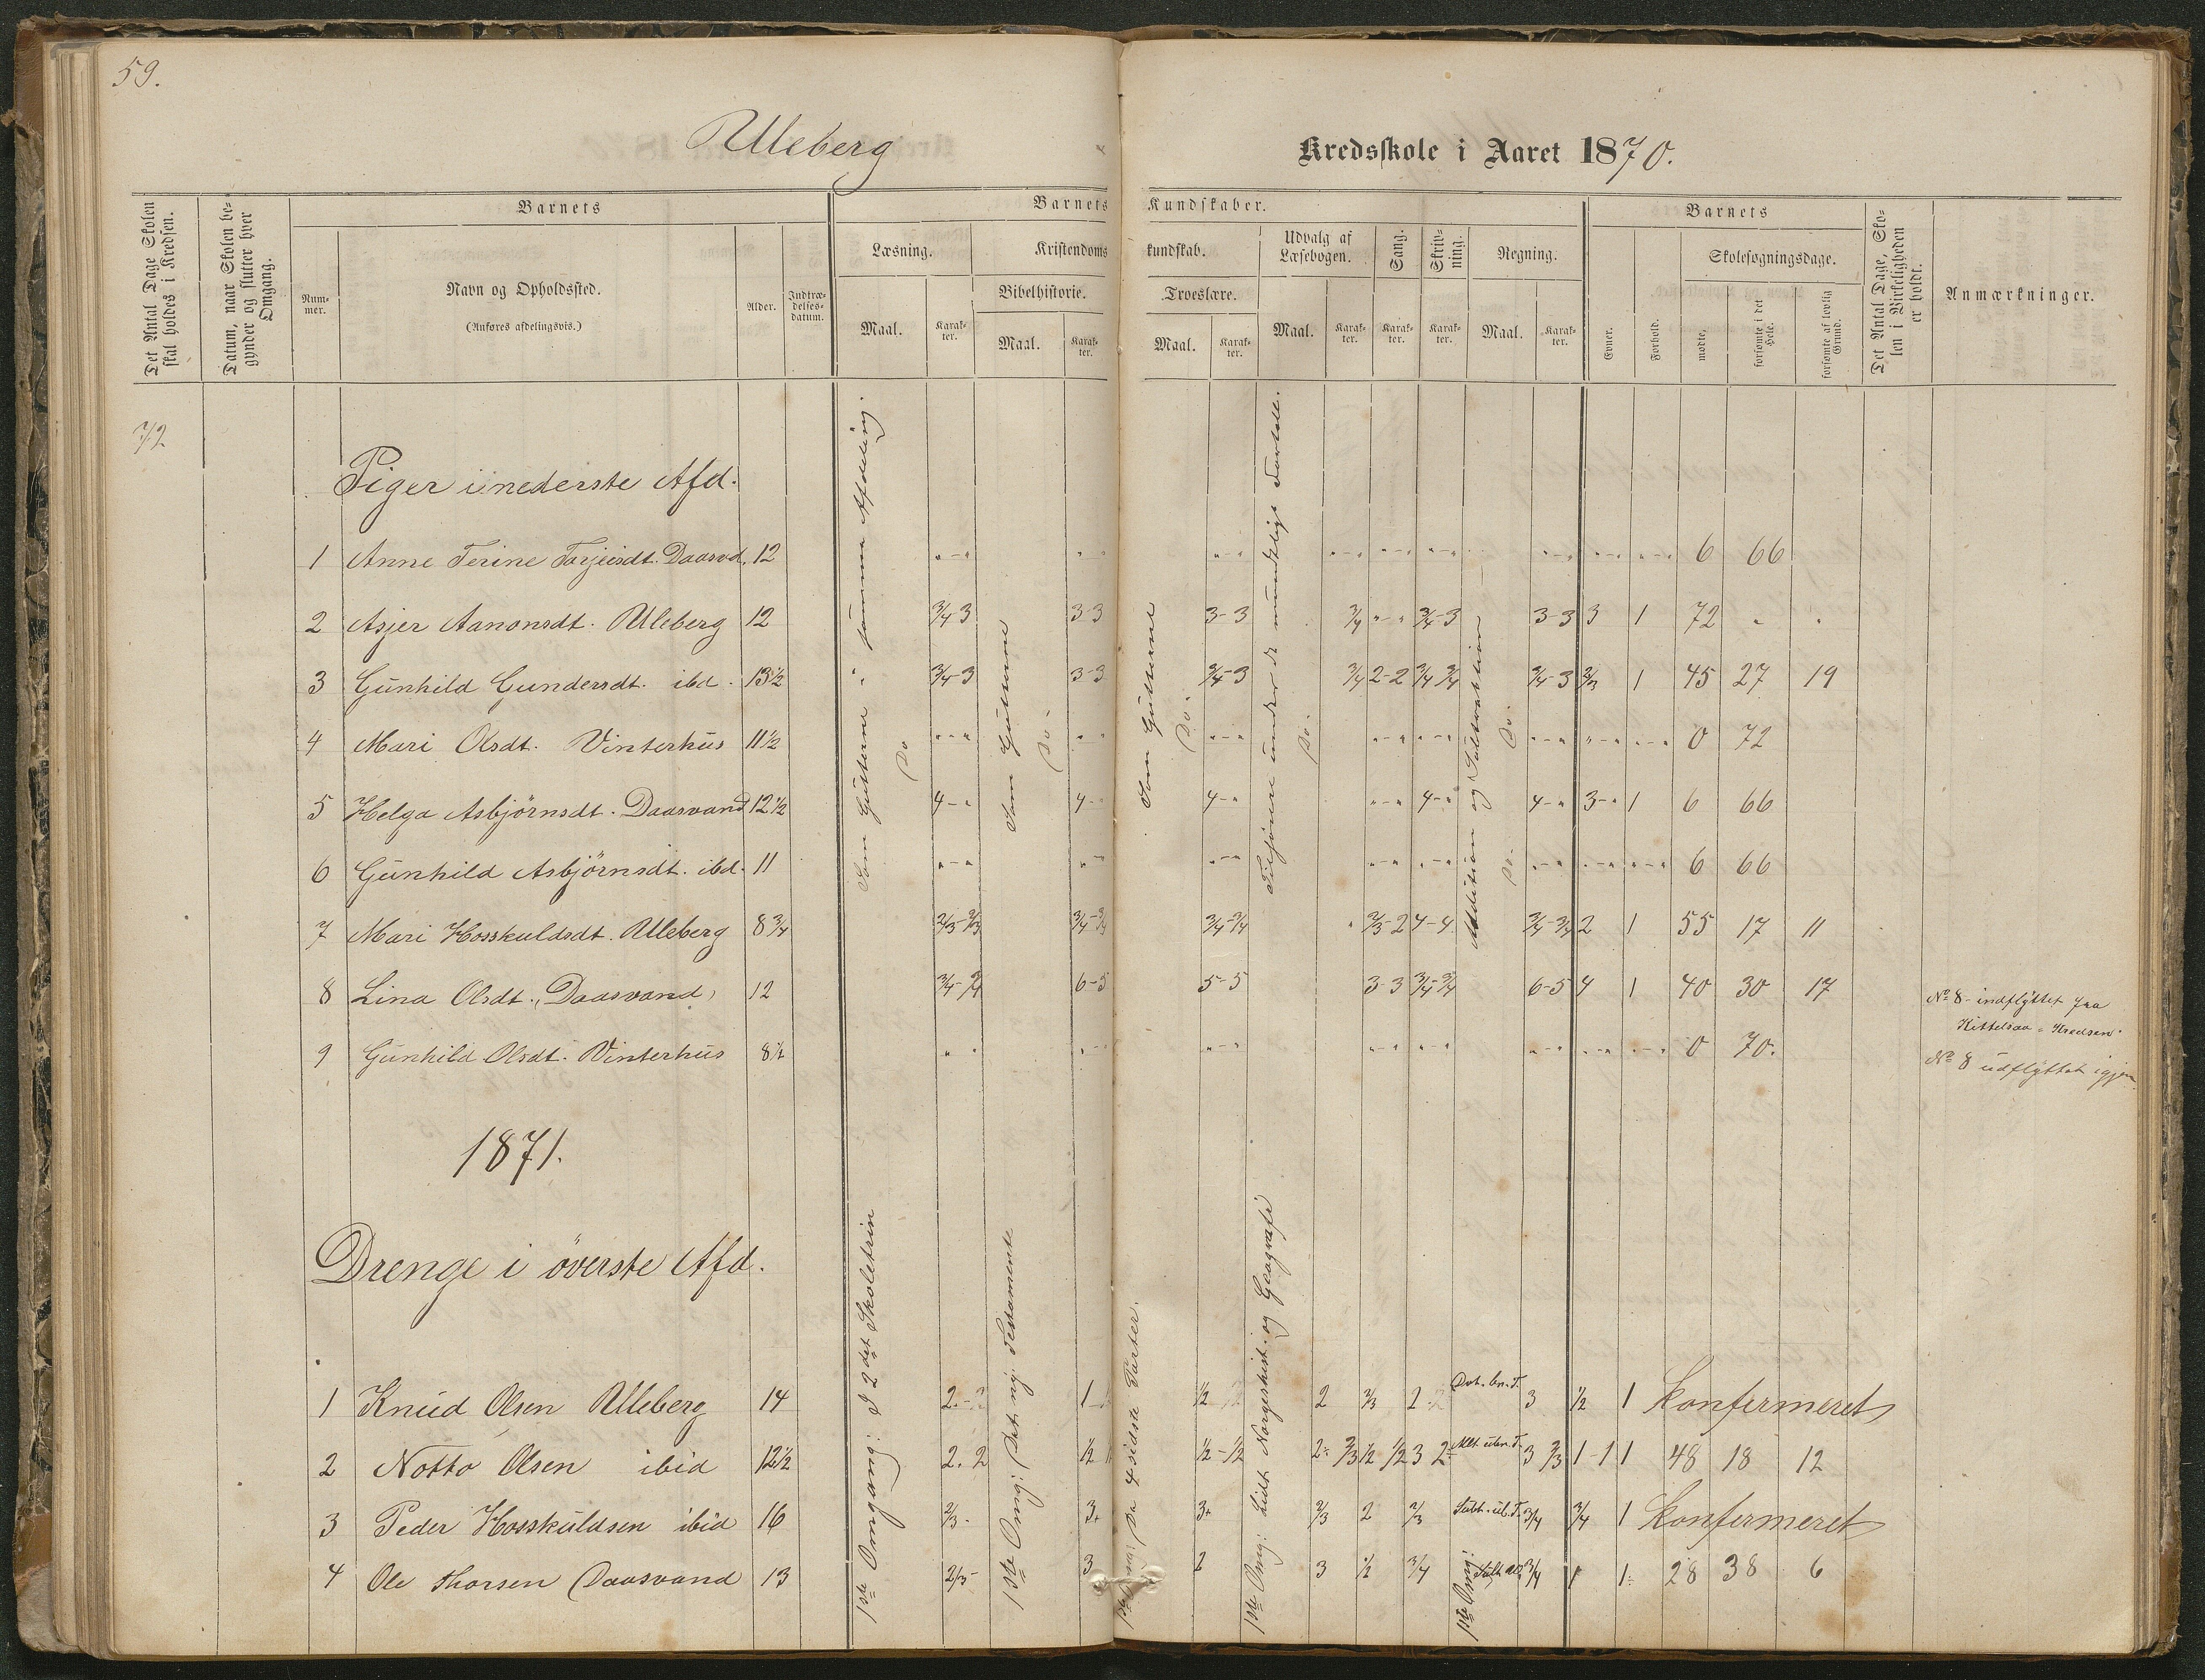 59.
Ulleberg
Kredsskole i Aaret 1870.
Det Antal Dage Skolen skal holdes i Kredsen.
Datum, naar Skolen begynder og slutter hver Omgang.
Barnets
Nummer.
Navn og Opholdssted.
(Anføres afdelingsvis.)
Alder.
Indtrædelsesdatum.
Barnets Kundskaber.
Læsning.
Maal.
Karakter.
Kristendomskundskab.
Bibelhistorie.
Maal.
Karakter.
Troeslære.
Maal.
Karakter.
Udvalg af Læsebogen.
Maal.
Karakter.
Sang.
Karakter.
Skrivning.
Karakter.
Regning.
Maal.
Karakter.
Barnets
Evner.
Forhold.
Skolesøgningsdage.
mødte,
forsømte i det Hele.
forsømte af lovlig Grund.
Det Antal Dage, Skolen i Virkeligheden er holdt.
Anmærkninger.
72
Piger i nederste Afd.
Som Gutterne i samme Afdeling.
Do
Som Gutterne
Do.
Som Gutterne
Do.
Do.
Addition og Subtraktion
Do.
Do.
1 Anne Terine Tarjeisdt. Daasvd. 12 „-„ „-„ „-„ „-„ „-„ „-„ „-„ „-„ „-„ 6 66
2 Asjer Aanonsdt. Ulleberg 12 3/4 3 3-3 3-3 3/4 „-„ 3/4-3 3-3 3 1 72 „ „
3 Gunhild Gundersdt. ibd. 13 1/2 3/4-3 3-3 3/4-3 3/4 2-2 3/4 3/4 3/4-3 2/3 1 45 27 19
4 Mari Olsdt. Vinterhus 11 1/2 „-„ „-„ „-„ „-„ „-„ „-„ „-„ „-„ 0 72
5 Helga Asbjörnsdt. Daasvand 12 1/2 4-„ 4-„ 4-„ „-„ 4-„ 4-„ 3-„ 1 6 66
6 Gunhild Asbjörnsdt. ibd. 11 „-„ „-„ „-„ „-„ „-„ „-„ „-„ „-„ 6 66
7 Mari Hosskuldsdt. Ulleberg 8 3/4 2/3-2/3 3/4-3/4 3/4-3/4 „ 2/3-2 4-4 3/4-3/4 2 1 55 17 11
8 Lina Olsdt. Daasvand 12 3/4-3/4 6-5 5-5 3-3 3/4-3/4 6-5 4 1 40 30 17
No 8 - indflyttet fra
Kittelsaa = Kredsen.
9 Gunhild Olsdt. Vinterhus 8 1/2 „ „ „-„ „-„ „-„ „-„ „-„ „-„ „-„ 0 70.
No 8 udflyttet igjen
1871.
Drenge i överste Afd.
1ste Omgang: I 2det Skoletrin
1ste Omg: Det ny. Testamente
De 4 sidste Parter.
1ste Omg: Lidt Norgeshist. og Geografi
1ste Omg:
1 Knud Olsen Ulleberg 14 2.- 1 1/2 2 2/3 2 3 1/2 1 Konfermeret
2 Notto Olsen ibid 12 1/2 2. 2 1/2 1/2-1/2 2- 2/3 1/2 1/2 3 2- 3 2/3 1-1 1 48 18 12
3 Peder Hosskuldsen ibid 16 2/3- 3+ 3+ 2/3 2 2/3 3/4 3/4 1 Konfermeret
4 Ole Thorsen Daasvand 13 2/3- 3 2 3 1/2 3/4 3/4 1 1- 28 38 6